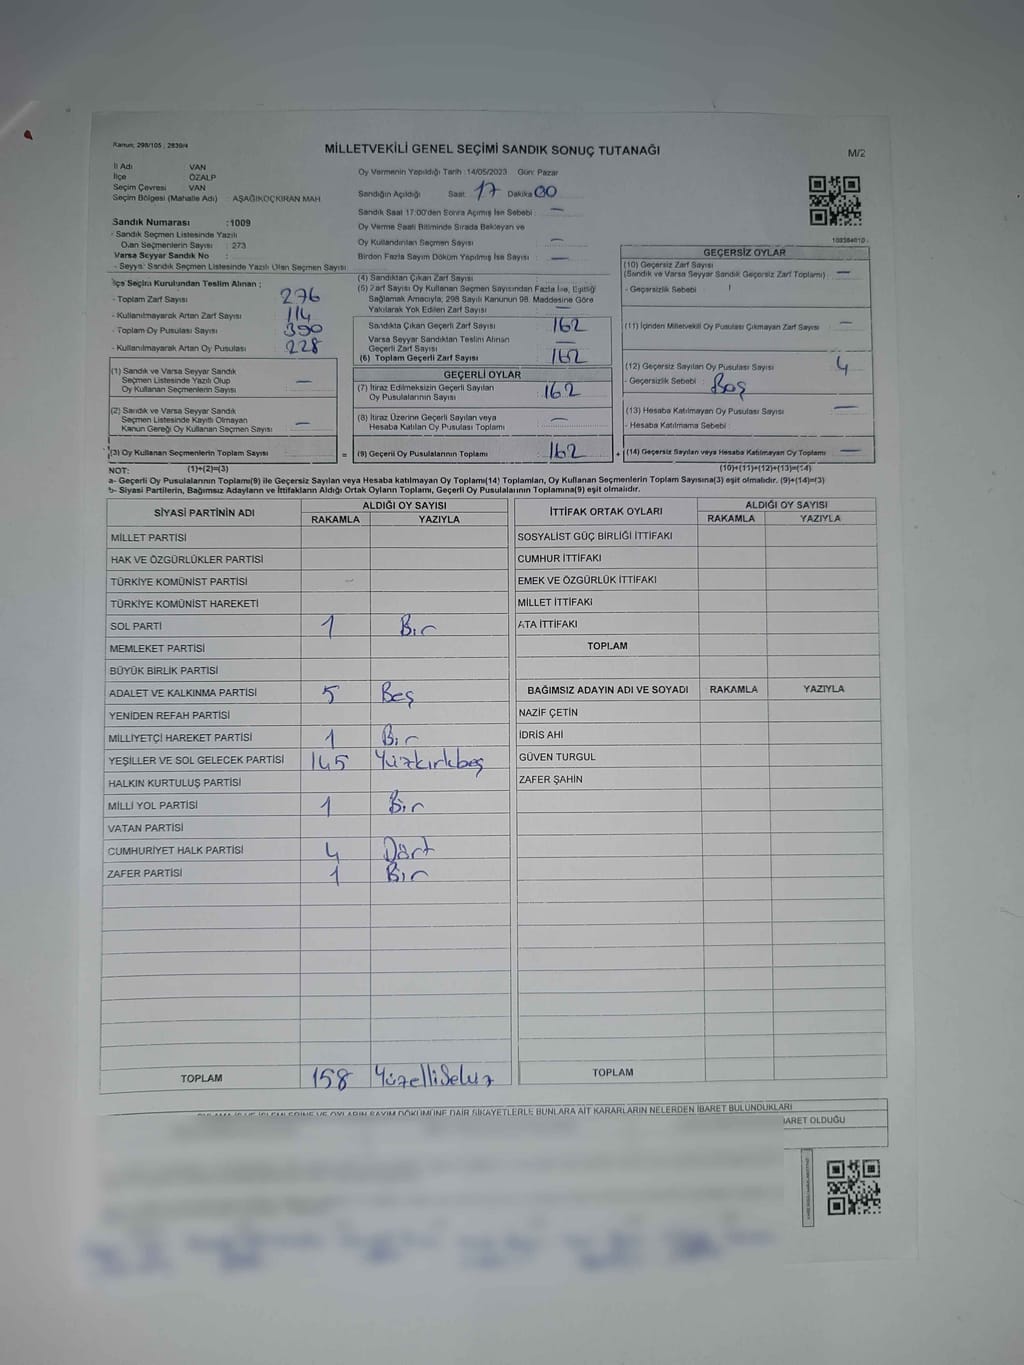 Kanun; 298/105 ; 2839/4
MİLLETVEKİLİ GENEL SEÇİMİ SANDIK SONUÇ TUTANAĞI
M/2
İl Adı : VAN
İlçe : ÖZALP
Seçim Çevresi : VAN
Seçim Bölgesi (Mahalle Adı) : AŞAĞIKOÇKIRAN MAH
Sandık Numarası :1009
- Sandık Seçmen Listesinde Yazılı
Olan Seçmenlerin Sayısı : 273
Varsa Seyyar Sandık No :
- Seyyar Sandık Seçmen Listesinde Yazılı Olan Seçmen Sayısı
Oy Vermenin Yapıldığı Tarih :14/05/2023 Gün: Pazar
Sandığın Açıldığı Saat: 17 Dakika 00
Sandık Saat 17:00'den Sonra Açılmış İse Sebebi : —
Oy Verme Saati Bitiminde Sırada Bekleyen ve
Oy Kullandırılan Seçmen Sayısı : —
Birden Fazla Sayım Döküm Yapılmış İse Sayısı : —
100384010 -
İlçe Seçim Kurulundan Teslim Alınan ;
- Toplam Zarf Sayısı 276
- Kullanılmayarak Artan Zarf Sayısı : 114
- Toplam Oy Pusulası Sayısı 390
- Kullanılmayarak Artan Oy Pusulası : 228
(1) Sandık ve Varsa Seyyar Sandık
Seçmen Listesinde Yazılı Olup
Oy Kullanan Seçmenlerin Sayısı —
(2) Sandık ve Varsa Seyyar Sandık
Seçmen Listesinde Kayıtlı Olmayan
Kanun Gereği Oy Kullanan Seçmen Sayısı —
(3) Oy Kullanan Seçmenlerin Toplam Sayısı
(4) Sandıktan Çıkan Zarf Sayısı
(5) Zarf Sayısı Oy Kullanan Seçmen Sayısından Fazla İse, Eşitliği
Sağlamak Amacıyla, 298 Sayılı Kanunun 98. Maddesine Göre
Yakılarak Yok Edilen Zarf Sayısı —
Sandıkta Çıkan Geçerli Zarf Sayısı 162
Varsa Seyyar Sandıktan Teslim Alınan
Geçerli Zarf Sayısı —
(6) Toplam Geçerli Zarf Sayısı 162
GEÇERLİ OYLAR
(7) İtiraz Edilmeksizin Geçerli Sayılan
Oy Pusulalarının Sayısı 162
(8) İtiraz Üzerine Geçerli Sayılan veya
Hesaba Katılan Oy Pusulası Toplamı —
= (9) Geçerli Oy Pusulalarının Toplamı 162
GEÇERSİZ OYLAR
(10) Geçersiz Zarf Sayısı
(Sandık ve Varsa Seyyar Sandık Geçersiz Zarf Toplamı) —
- Geçersizlik Sebebi :
(11) İçinden Milletvekili Oy Pusulası Çıkmayan Zarf Sayısı —
(12) Geçersiz Sayılan Oy Pusulası Sayısı 4
- Geçersizlik Sebebi : Boş
(13) Hesaba Katılmayan Oy Pusulası Sayısı —
- Hesaba Katılmama Sebebi :
+ (14) Geçersiz Sayılan veya Hesaba Katılmayan Oy Toplamı —
NOT: (1)+(2)=(3) (10)+(11)+(12)+(13)=(14)
a- Geçerli Oy Pusulalarının Toplamı(9) ile Geçersiz Sayılan veya Hesaba katılmayan Oy Toplamı(14) Toplamları, Oy Kullanan Seçmenlerin Toplam Sayısına(3) eşit olmalıdır. (9)+(14)=(3)
b- Siyasi Partilerin, Bağımsız Adayların ve İttifakların Aldığı Ortak Oyların Toplamı, Geçerli Oy Pusulalarının Toplamına(9) eşit olmalıdır.
SİYASİ PARTİNİN ADI ALDIĞI OY SAYISI
RAKAMLA YAZIYLA
MİLLET PARTİSİ
HAK VE ÖZGÜRLÜKLER PARTİSİ
TÜRKİYE KOMÜNİST PARTİSİ
TÜRKİYE KOMÜNİST HAREKETİ
SOL PARTİ 1 Bir
MEMLEKET PARTİSİ
BÜYÜK BİRLİK PARTİSİ
ADALET VE KALKINMA PARTİSİ 5 Beş
YENİDEN REFAH PARTİSİ
MİLLİYETÇİ HAREKET PARTİSİ 1 Bir
YEŞİLLER VE SOL GELECEK PARTİSİ 145 Yüzkırkbeş
HALKIN KURTULUŞ PARTİSİ
MİLLİ YOL PARTİSİ 1 Bir
VATAN PARTİSİ
CUMHURİYET HALK PARTİSİ 4 Dört
ZAFER PARTİSİ 1 Bir
TOPLAM 158 Yüzellisekiz
İTTİFAK ORTAK OYLARI ALDIĞI OY SAYISI
RAKAMLA YAZIYLA
SOSYALİST GÜÇ BİRLİĞİ İTTİFAKI
CUMHUR İTTİFAKI
EMEK VE ÖZGÜRLÜK İTTİFAKI
MİLLET İTTİFAKI
ATA İTTİFAKI
TOPLAM
BAĞIMSIZ ADAYIN ADI VE SOYADI RAKAMLA YAZIYLA
NAZİF ÇETİN
İDRİS AHİ
GÜVEN TURGUL
ZAFER ŞAHİN
TOPLAM
OYLARIN SAYIM DÖKÜMÜNE DAİR ŞİKAYETLERLE BUNLARA AİT KARARLARIN NELERDEN İBARET BULUNDUKLARI
İBARET OLDUĞU